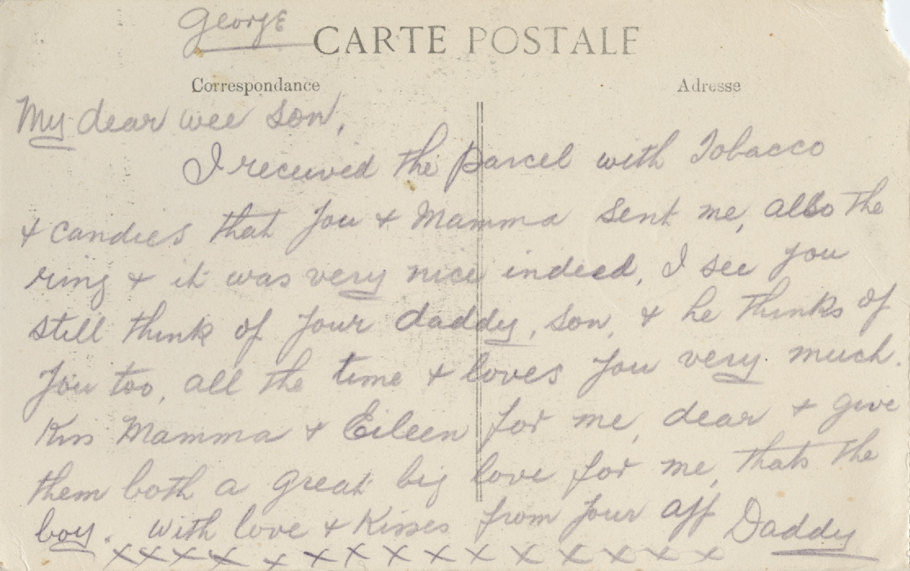 George
CARTE POSTALE
Correspondance
Adresse
My dear wee son,
I received the parcel with Tobacco
& candies that you & Mamma sent me, also the
ring & it was very nice indeed, I see you
still think of your daddy, son, & he thinks of
you too, all the time & loves you very much.
Kiss Mamma & Eileen for me, dear & give
them both a great big love for me, thats the
boy. With love & Kisses from your aff Daddy
xxxxxxxxxxxxxxxxx